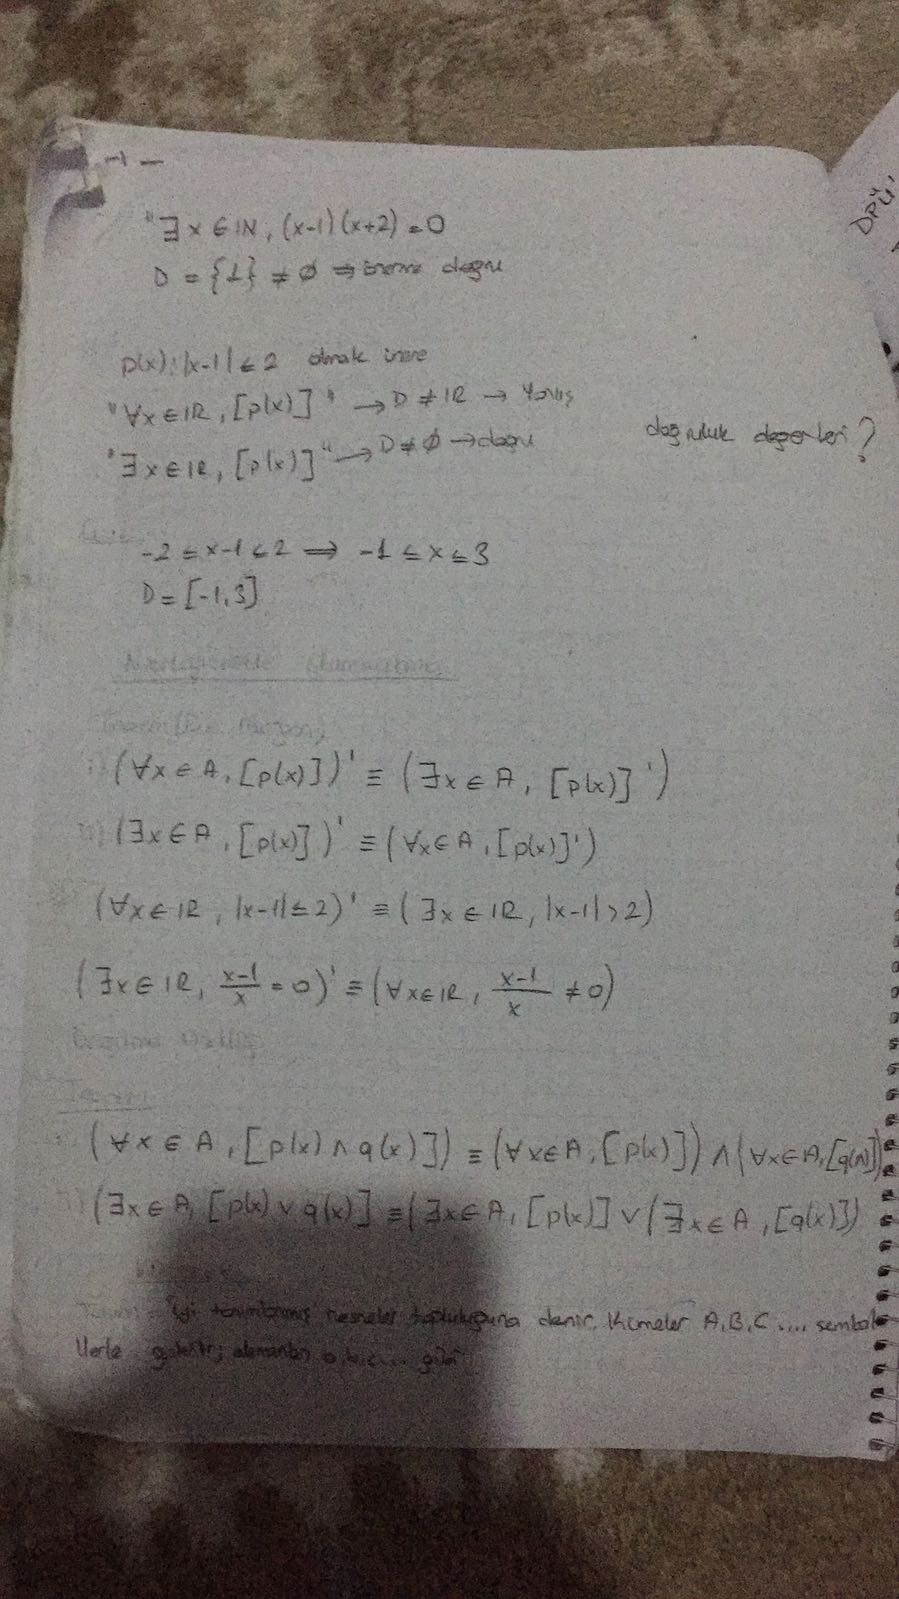 -1-
"∃x∈IN, (x-1)(x+2)=0
D = {1} ≠ ∅ ⇒ önerme doğru
p(x): |x-1| ≤ 2 olmak üzere
"∀x∈IR, [p(x)]" → D ≠ IR → Yanlış
"∃x∈IR, [p(x)]" → D ≠ ∅ → doğru
doğruluk değerleri?
-2 ≤ x-1 ≤ 2 ⇒ -1 ≤ x ≤ 3
D = [-1,3]
Teorem (De Morgan)
i) (∀x∈A, [p(x)])' ≡ (∃x∈A, [p(x)]')
ii) (∃x∈A, [p(x)])' ≡ (∀x∈A, [p(x)]')
(∀x∈IR, |x-1| ≤ 2)' ≡ (∃x∈IR, |x-1| > 2)
(∃x∈IR, x-1/x = 0)' ≡ (∀x∈IR, x-1/x ≠ 0)
Dağılma Özelliği
Teorem
(∀x∈A, [p(x) ∧ q(x)]) ≡ (∀x∈A, [p(x)]) ∧ (∀x∈A, [q(x)])
(∃x∈A, [p(x) ∨ q(x)] ≡ (∃x∈A, [p(x)] ∨ (∃x∈A, [q(x)])
İyi tanımlanmış nesneler topluluğuna denir. Kümeler A,B,C .... sembol
llerle gösterilir; elemanları a,b,c... gibi
DPÜ